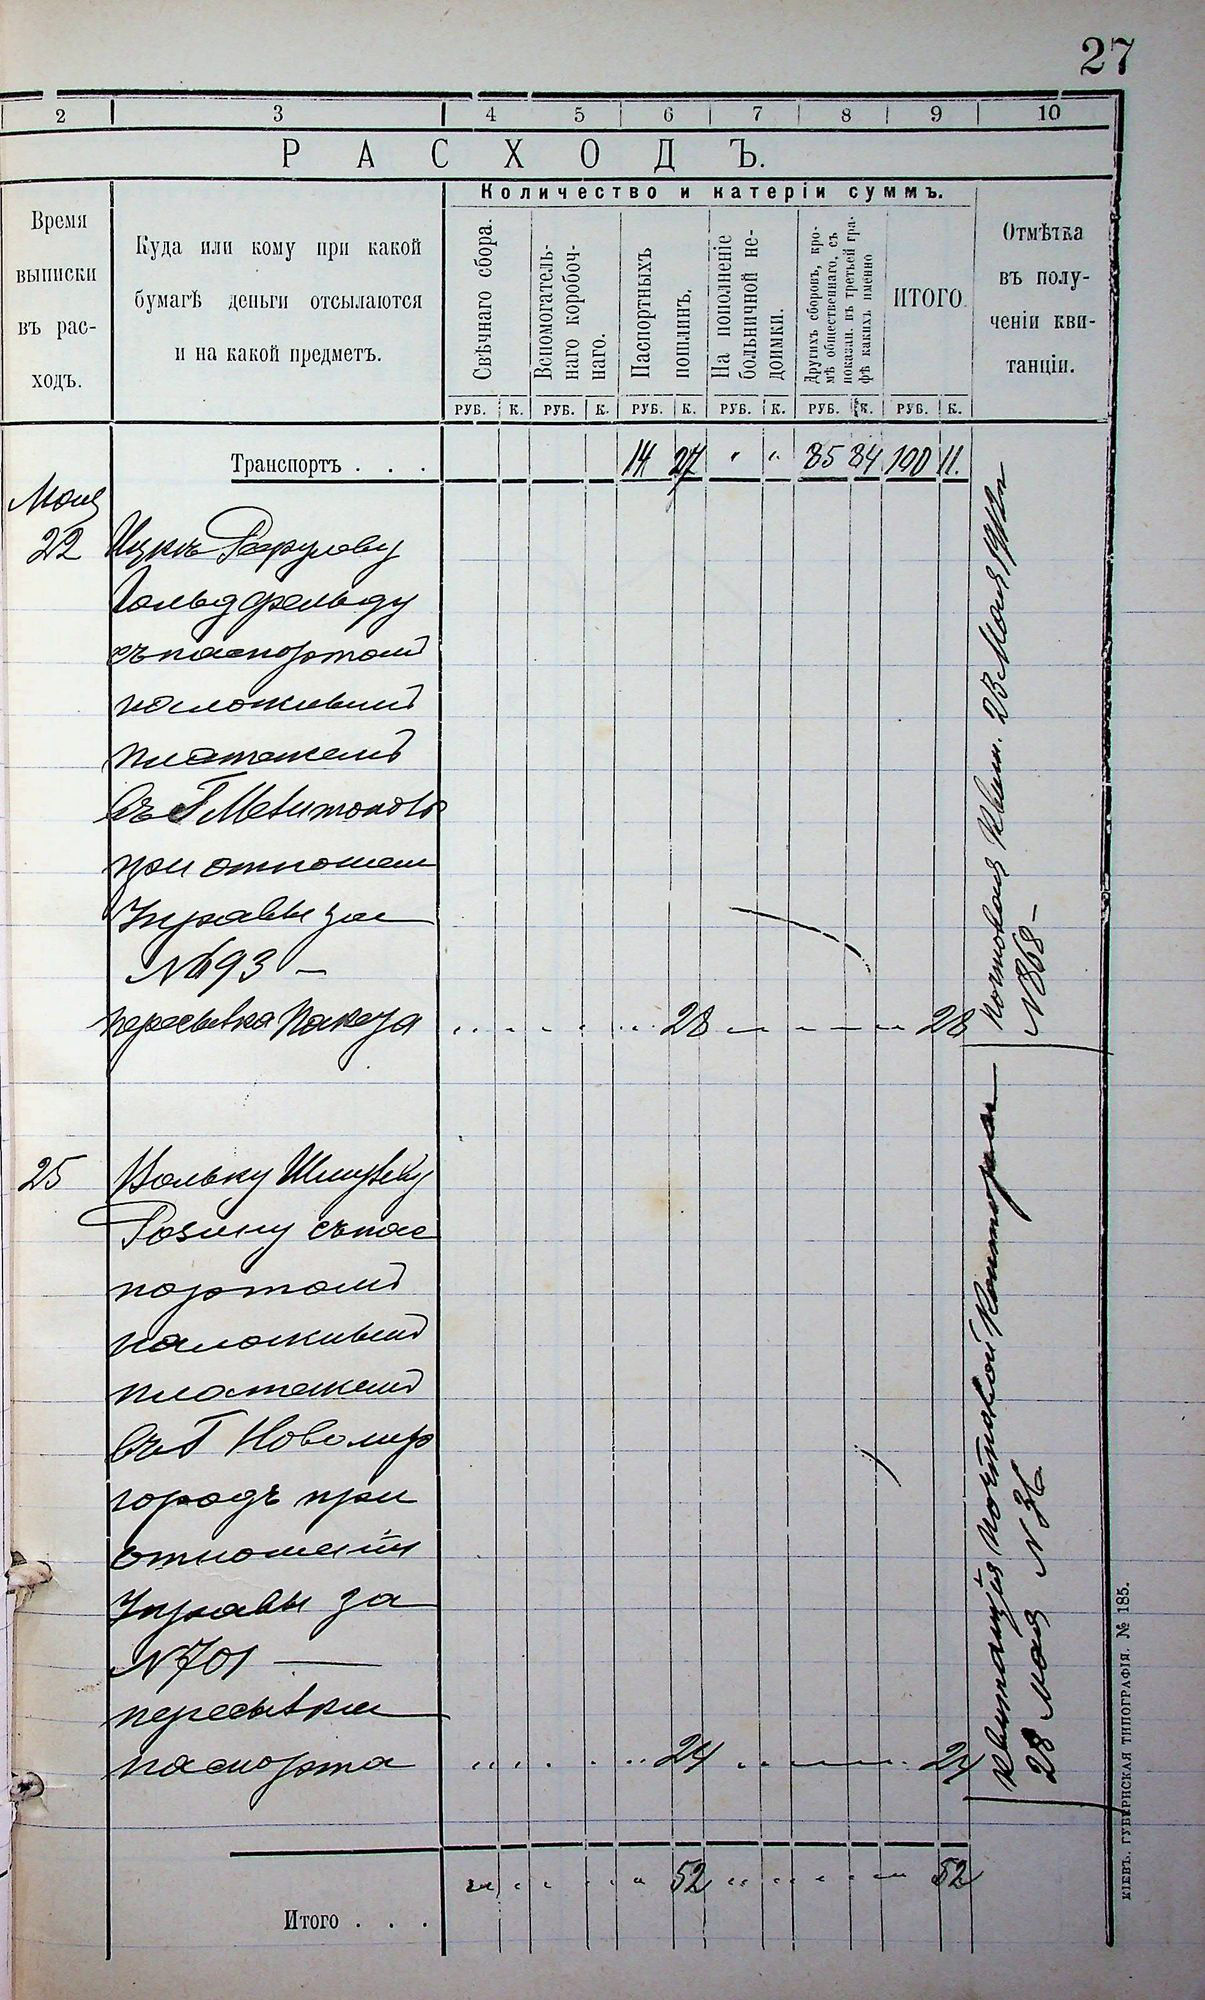 27
2 3 4 5 6 7 8 9 10
РАСХОДЪ.
Количество и катерiи суммъ.
Время
выписки
въ рас-
ходъ.
Куда или кому при какой
бумагѣ деньги отсылаются
и на какой предметъ.
Свѣчнаго сбора.
Вспомогатель-
наго коробоч-
наго.
Паспортныхъ
пошлинъ.
На пополненіе
больничной не-
доимки.
Другихъ сборовъ, кро-
мѣ общественнаго, съ
показан. въ третьей гра-
фѣ какихъ именно
ИТОГО.
Отмѣтка
въ полу-
ченіи кви-
танціи.
РУБ. К. РУБ. К. РУБ. К. РУБ. К. РУБ. К. РУБ. К.
Транспортъ . . . 14 27 " " 85 84 100 11.
Мая
22 Ицкѣ Рафулову
Гольдфельду
съ паспортомъ
наложнымъ
платежемъ
въ Г Мелитополь
при отношеніи
Управы за
№ 693 —
пересылка пакета 28 28
Почтовая Квит. 23 Мая 1912 г
№ 868 —
25 Вольку
Розину съ пас
портомъ
наложнымъ
платежемъ
въ Г Новомир
городъ при
отношеніи
Управы за
№ 701 —
пересылка
паспорта 24 24
Квитанція почтовой Конторы
28 Мая № 36
52 52
Итого . . .
КІЕВЪ. ГУБЕРНСКАЯ ТИПОГРАФІЯ. № 185.